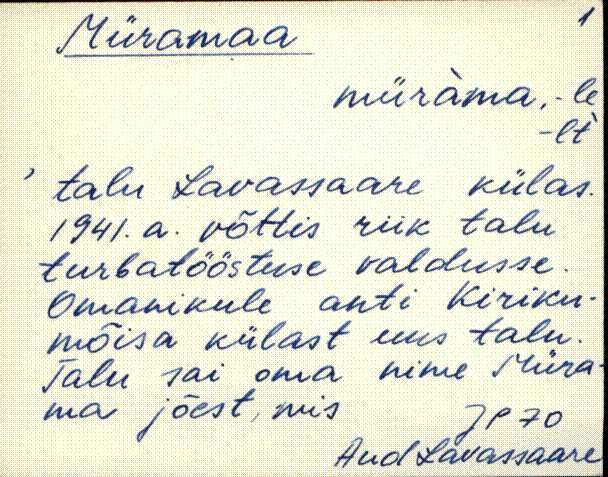 1
Müramaa
müràma, -le
-lt̀
talu Lavassaare külas.
1941. a. võttis riik talu
turbatööstuse valdusse.
Omanikule anti Kiriku-
mõisa külast uus talu.
Talu sai oma nime Müra-
ma jõest, mis
JP 70
Aud Lavassaare